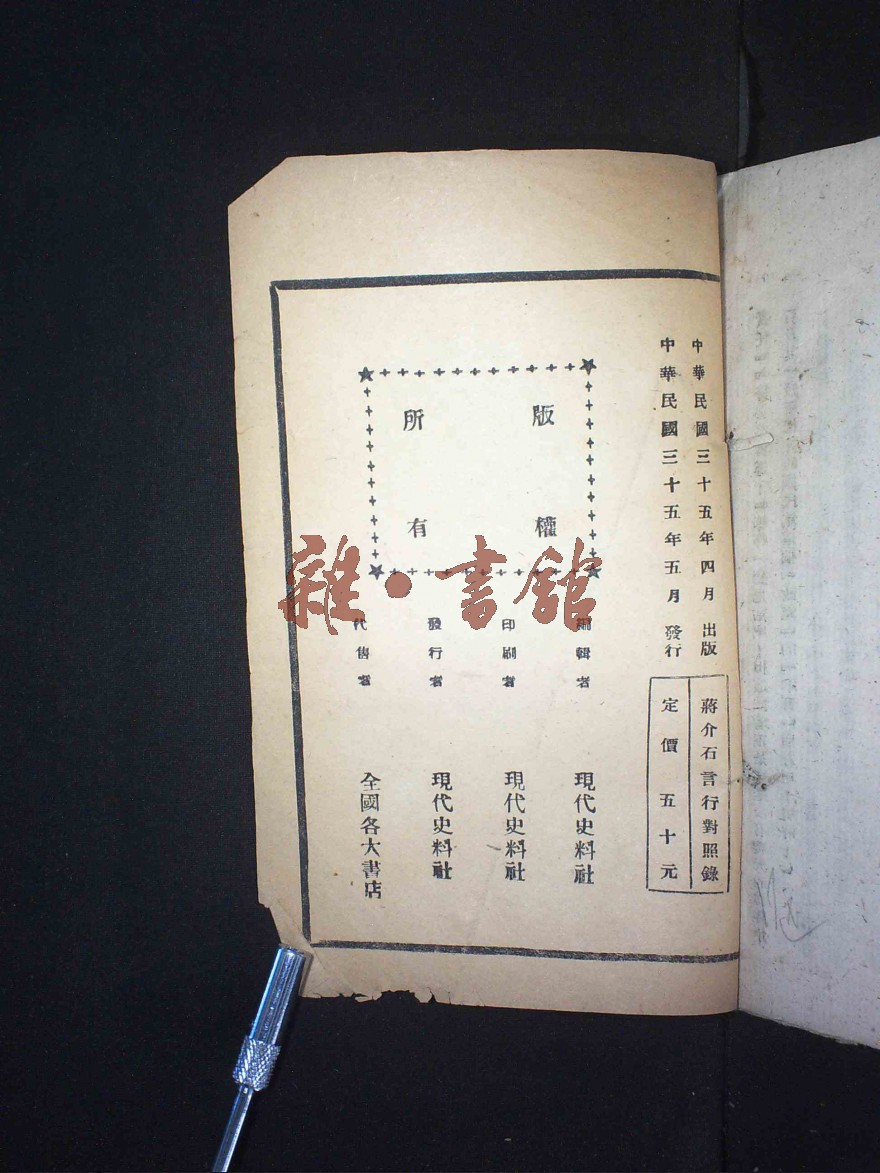 中華民國三十五年四月 出版
中華民國三十五年五月 發行
蔣介石言行對照錄
定價 五十元
版權
所有
編輯者 現代史料社
印刷者 現代史料社
發行者 現代史料社
代售者 全國各大書店
雜·書館